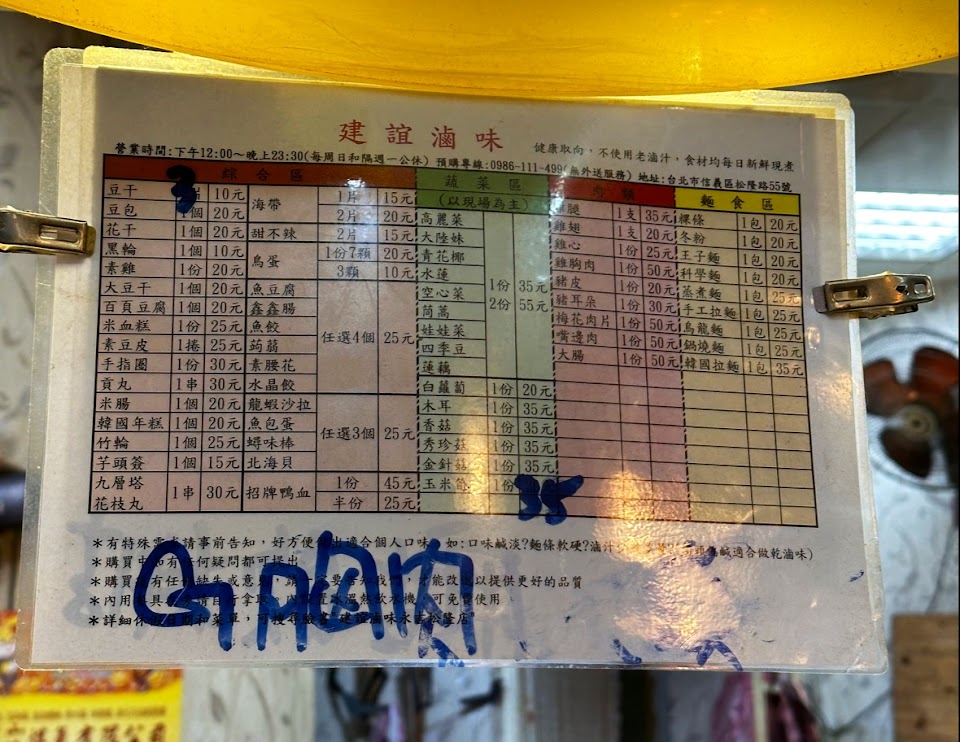 建誼滷味
健康取向，不使用老滷汁，食材均每日新鮮現煮
營業時間:下午12:00～晚上23:30(每周日和隔週一公休) 預購專線:0986-111-499(無外送服務) 地址:台北市信義區松隆路55號
綜合區 蔬菜區 肉類 麵食區
(以現場為主)
豆干 3 10元 海帶 1片 15元
豆包 1個 20元 2片 20元
花干 1個 20元 甜不辣 2片 15元
黑輪 1個 10元 鳥蛋 1份7顆 20元
素雞 1份 20元 3顆 10元
大豆干 1個 20元 魚豆腐
百頁豆腐 1個 20元 鑫鑫腸
米血糕 1份 25元 魚餃
素豆皮 1捲 25元 蒟蒻
任選4個 25元
手指圈 1份 30元 素腰花
貢丸 1串 30元 水晶餃
米腸 1個 20元 龍蝦沙拉
韓國年糕 1個 20元 魚包蛋
任選3個 25元
竹輪 1個 25元 蟳味棒
芋頭簽 1個 15元 北海貝
九層塔花枝丸 1串 30元 招牌鴨血 1份 45元
半份 25元
高麗菜
大陸妹
青花椰
水蓮
空心菜
茼蒿
娃娃菜
四季豆
蓮藕
1份 35元
2份 55元
白蘿蔔 1份 20元
木耳 1份 35元
香菇 1份 35元
秀珍菇 1份 35元
金針菇 1份 35元
玉米筍 1份 35
雞腿 1支 35元
雞翅 1支 20元
雞心 1份 25元
雞胸肉 1份 50元
豬皮 1份 20元
豬耳朵 1份 30元
梅花肉片 1份 50元
嘴邊肉 1份 50元
大腸 1份 50元
粿條 1包 20元
冬粉 1包 20元
王子麵 1包 20元
科學麵 1包 20元
蒸煮麵 1包 25元
手工拉麵 1包 25元
烏龍麵 1包 25元
鍋燒麵 1包 25元
韓國拉麵 1包 35元
＊有特殊需求請事前告知，好方便做出適合個人口味，如:口味鹹淡?麵條軟硬?滷汁 鹹適合做乾滷味)
＊購買中如有任何疑問都可提出
＊購買後有任何缺失或意見，請一定要告知我們，才能改進以提供更好的品質
＊內用餐具 請自行拿取，內設置冰溫熱飲水機，可免費使用
＊詳細休 和菜單，可搜尋臉書"建誼滷味永吉松隆店"
內用